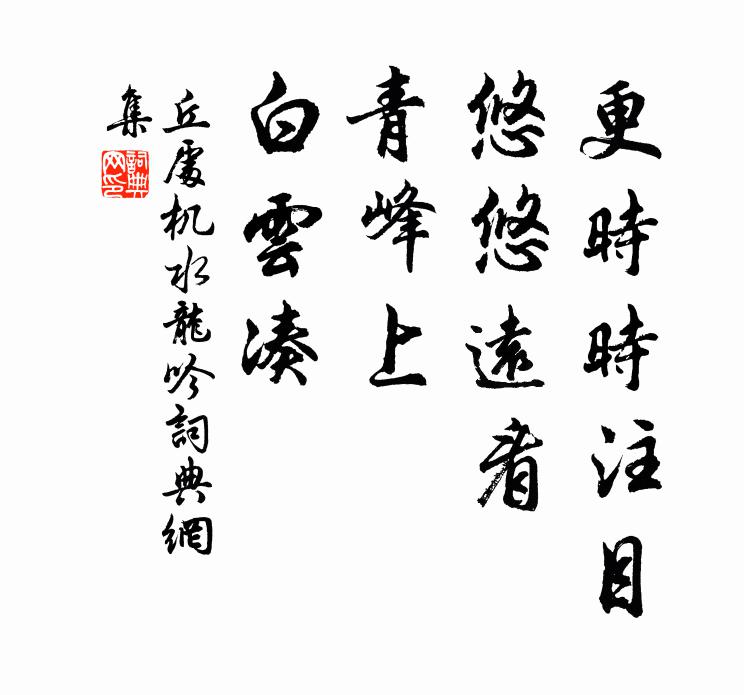 更時時注目
悠悠遠看
青峰上
白雲湊
丘處机水龍吟詞典網
集
詞典
网印